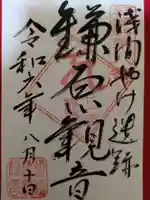 浅間やけ遺跡
鎌原観音
令和六年八月十日